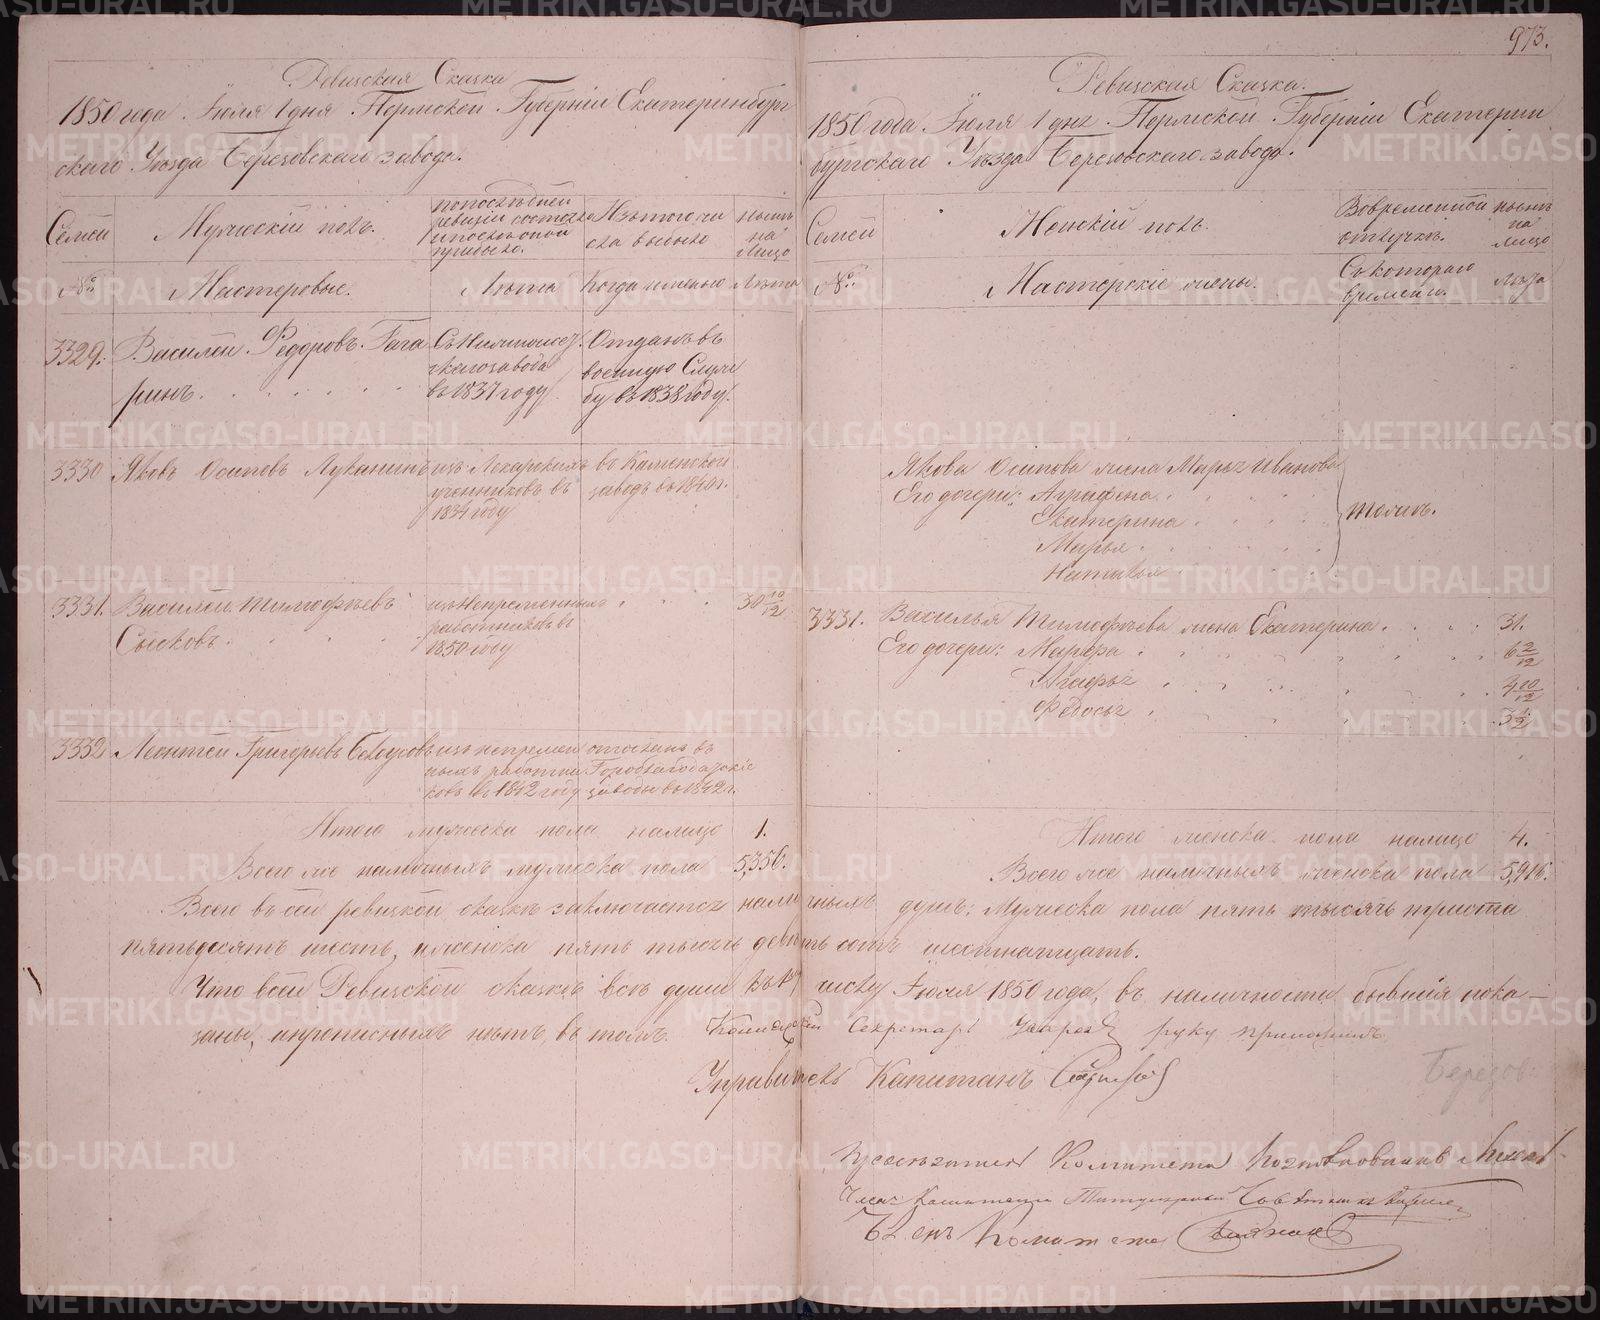 973.
Ревизская Сказка
1850 года Июля 1 дня Пермской Губерніи Екатеринбург
скаго Уѣзда Березовскаго завода.
Семей
Мужескій полъ.
по послѣдней ревизіи состояло и послѣ оной прибыло.
Изъ того числа выбыло
нынѣ на лицо
№
Мастеровые.
Лѣта
Когда именно
Лѣта
3329. Василей Федоровъ Гага
ринъ.
скаго завода
въ 1837 году
Отданъ въ
военную Служ
бу въ 1838 году.
3330 Яковъ Осиповъ Луканинъ
изъ Лекарскихъ
учениковъ въ
1834 году
въ Каменской
заводъ въ 1840 г.
3331. Василей Тимофѣевъ
Сысковъ.
изъ Непременныхъ
работниковъ въ
1850 году
30 10/12
3332 Леонтей Григорьевъ Белоусовъ
изъ непремен
ныхъ работни
ковъ въ 1842 году
отосланъ въ
Гороблагодатскіе
заводы въ 1842 г.
Итого мужеска пола налицо 1.
Всего же наличныхъ мужеска пола 5,356.
Ревизская Сказка.
1850 года Июля 1 дня Пермской Губерніи Екатерин
бургскаго Уѣзда Березовскаго завода.
Семей
Женскій полъ.
Во временной отлучкѣ.
нынѣ на лицо
№
Мастерскіе жены.
Съ котораго времени.
Лѣта
Якова Осипова жена Марья Иванова
Его дочери: Аграфена
Екатерина
Марья
Наталья
тожъ.
3331. Василья Тимофѣева жена Екатерина 31.
Его дочери: Марфа 6 2/12
Агафья 4 10/12
Федосья 3 1/2
Итого женска пола налицо 4.
Всего же наличныхъ женска пола 5,916.
Всего въ сей ревизкой сказкѣ заключается наличныхъ душъ: Мужеска пола пять тысячь триста
пятьдесятъ шесть, и женска пять тысячь девять сотъ шестнатцать.
Что въ сей Ревизской сказкѣ всѣ души къ 1му числу Июля 1850 года, въ наличности бывшія пока-
заны, и прописныхъ нѣтъ, въ томъ. Секретарь руку приложилъ
Управитель Капитанъ
Березов.
Комитета
Членъ Комитета Титулярный
Членъ Комитета
METRIKI.GASO-URAL.RU